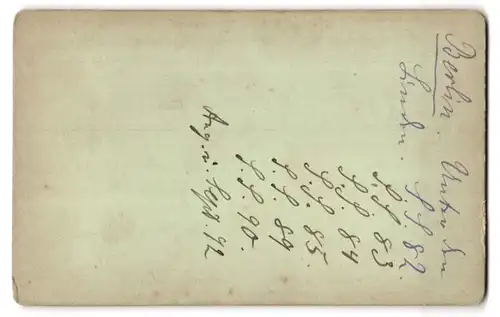 Berlin. Unter den
Linden. S. S. 82.
S. S. 83
S. S. 84
S. S. 85.
S. S. 89
S. S. 90.
Aug. u. Sept. 92